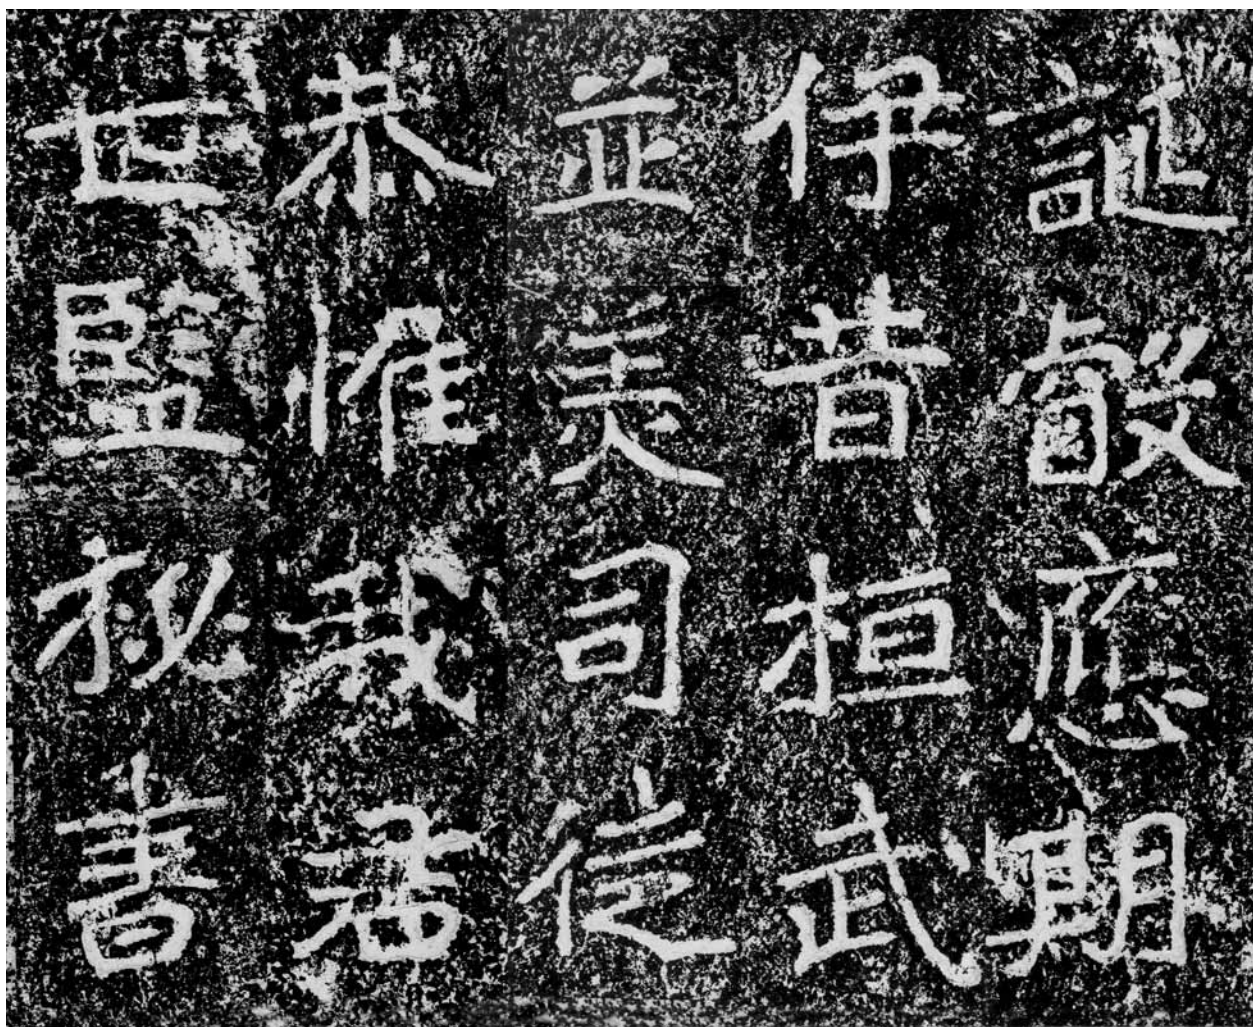 誕叡應期
伊昔桓武
並美司徒
恭惟我君
世監秘書